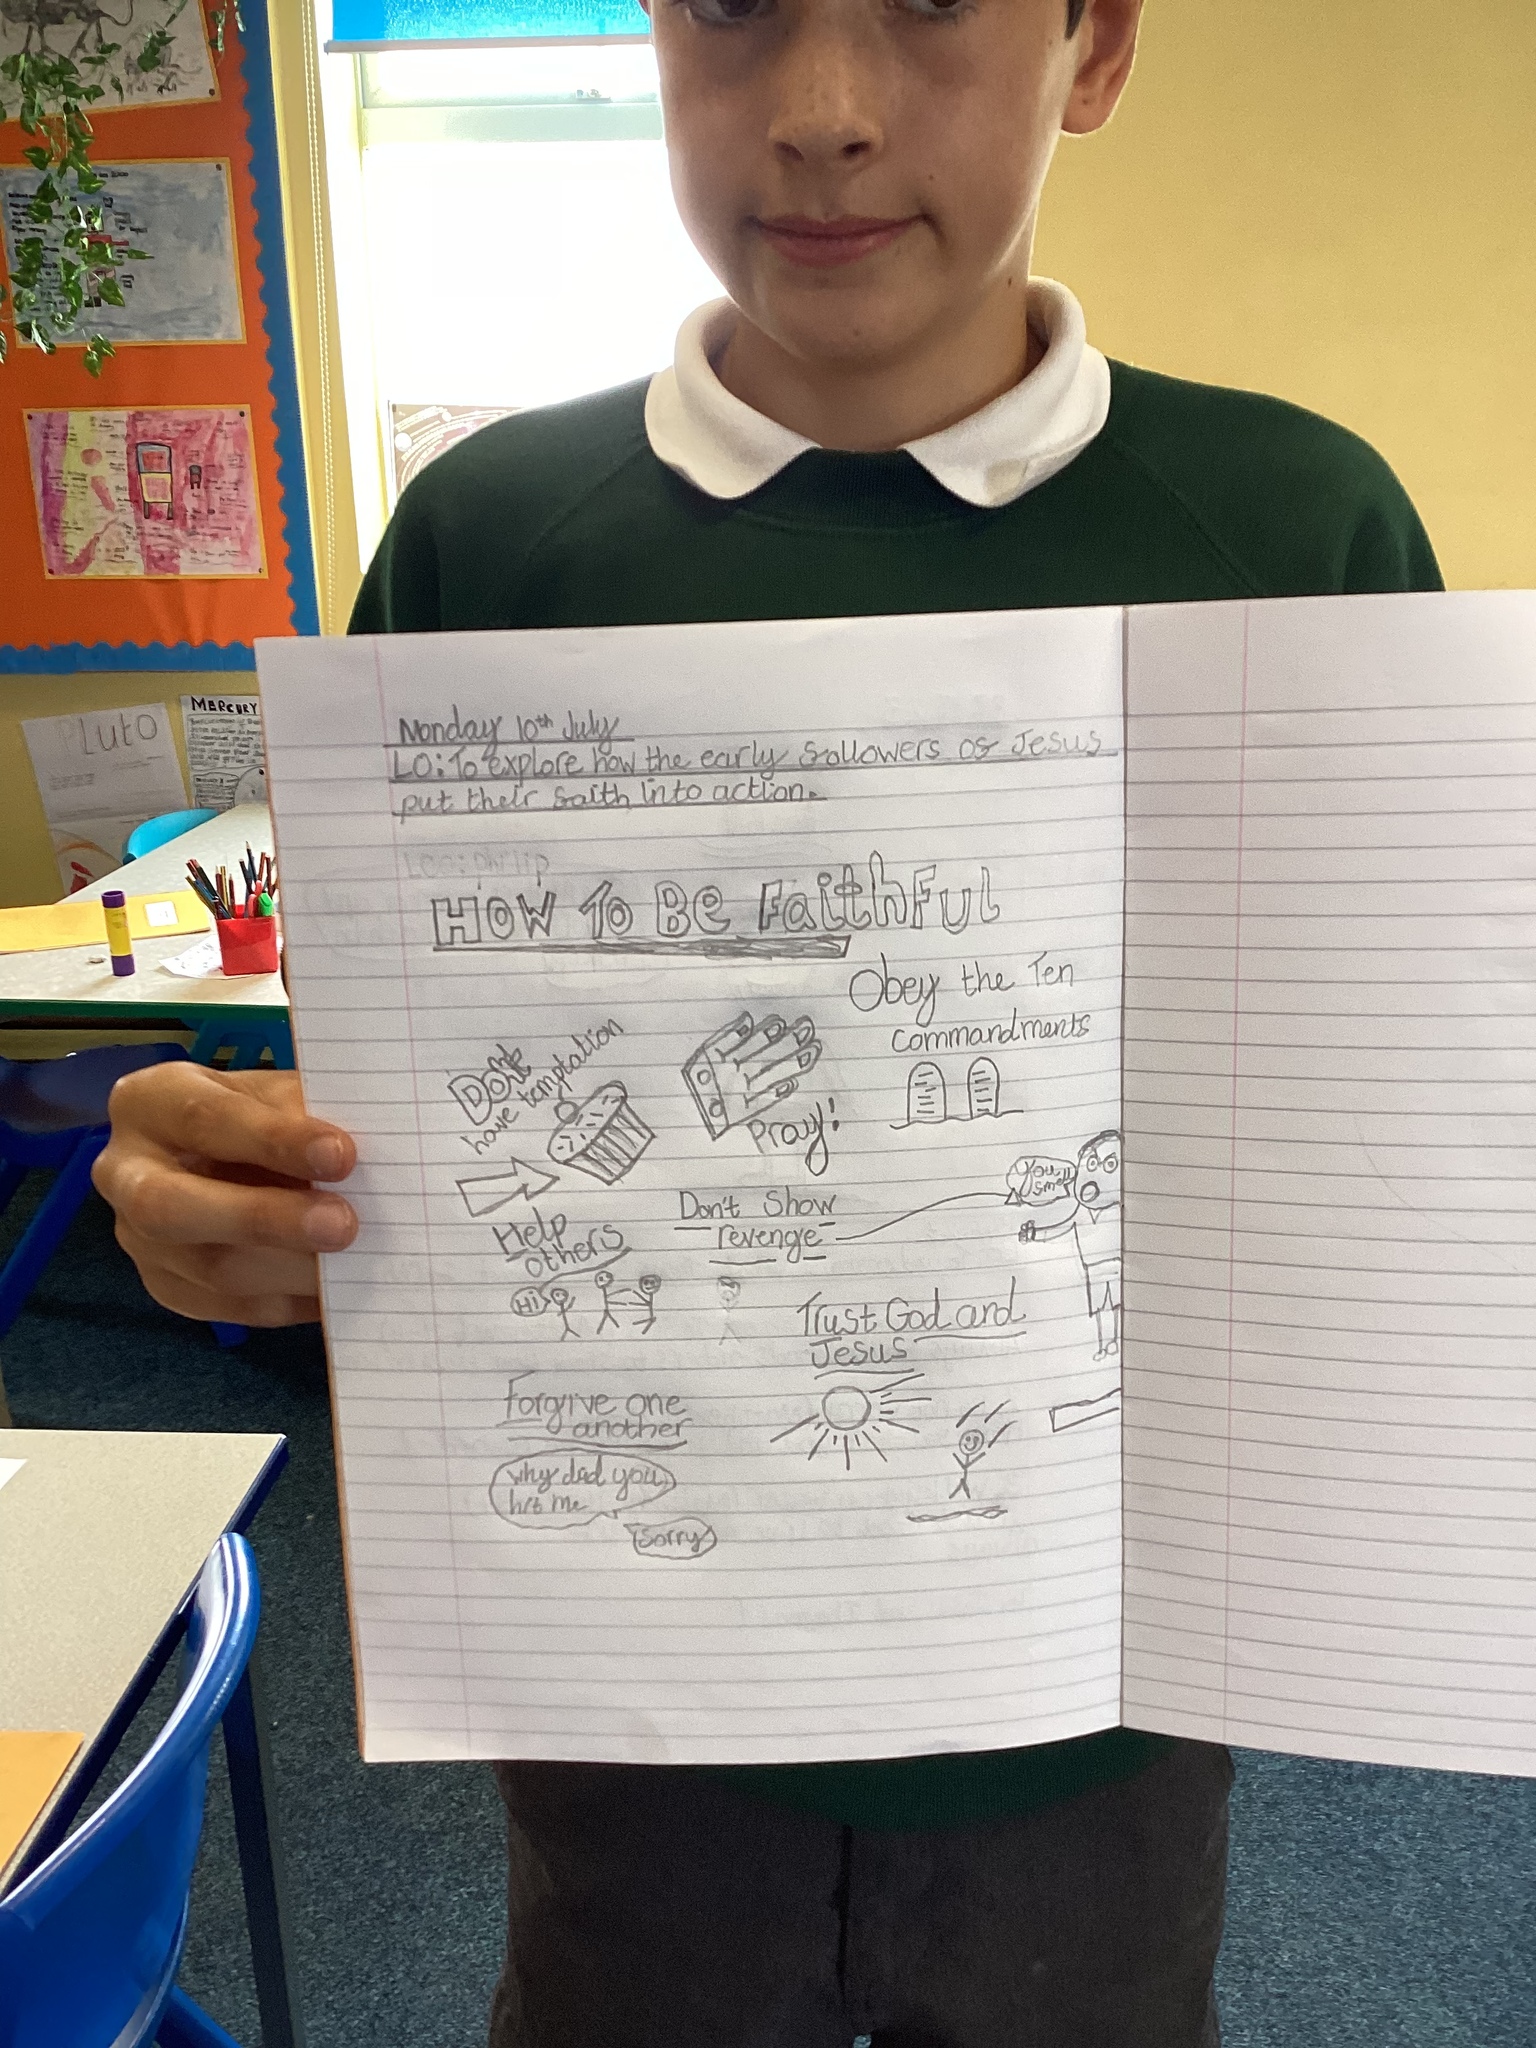 Monday 10th July
LO: To explore how the early followers of Jesus
put their faith into action.
HOW TO BE FaithFul
Obey the Ten
commandments
Dont
have temptation
Pray!
You
smell
Don't Show
revenge
Help
others
Hi
Trust God and
Jesus
Forgive one
another
why did you
hit me
Sorry
PLuto
MERCURY